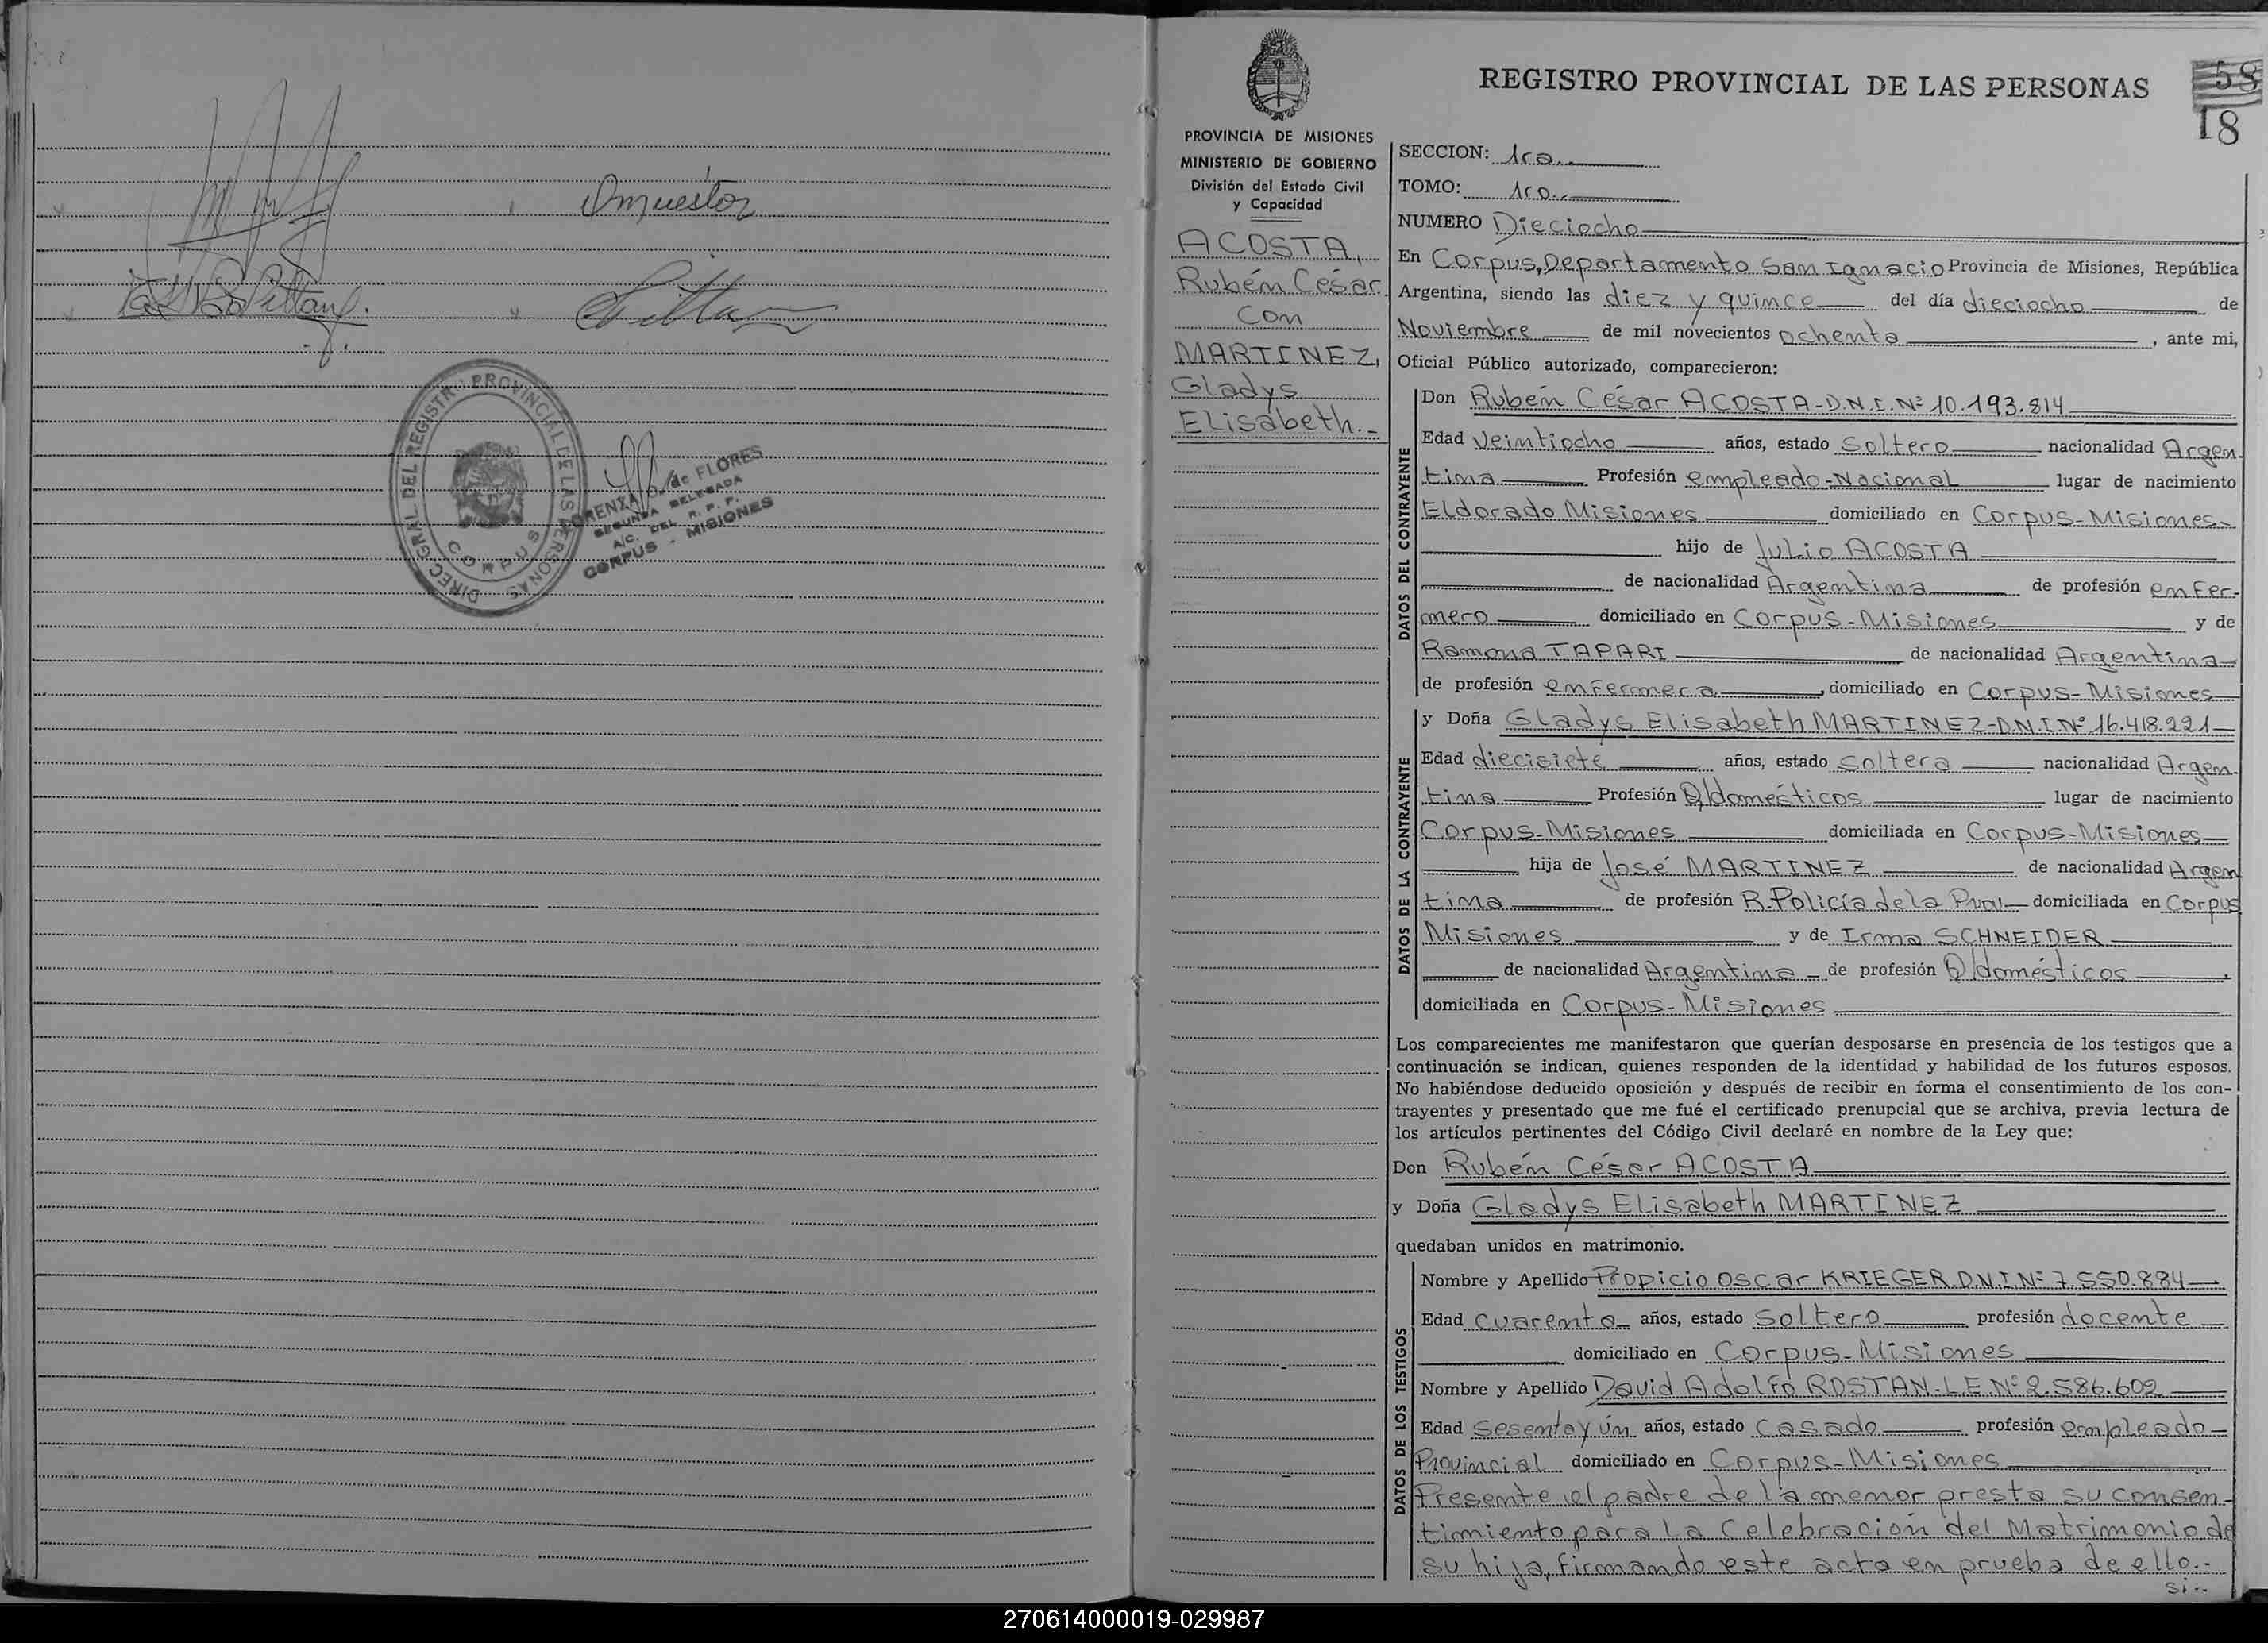 DIREC. GRAL. DEL REGISTRO PROVINCIAL DE LAS PERSONAS
CORPUS
de FLORES
SEGUNDA DELEGADA
A/C. DEL R. P. P.
CORPUS - MISIONES
REGISTRO PROVINCIAL DE LAS PERSONAS
58
18
PROVINCIA DE MISIONES
MINISTERIO DE GOBIERNO
División del Estado Civil
y Capacidad
ACOSTA,
Rubén César
con
MARTINEZ,
Gladys
Elisabeth.-
SECCION: 1ra.
TOMO: 1ro.
NUMERO Dieciocho
En Corpus, Departamento San Ignacio Provincia de Misiones, República
Argentina, siendo las diez y quince del día dieciocho de
Noviembre de mil novecientos ochenta, ante mi,
Oficial Público autorizado, comparecieron:
DATOS DEL CONTRAYENTE
Don Rubén César ACOSTA-D.N.I.Nº 10.193.814
Edad Veintiocho años, estado Soltero nacionalidad Argen
tina Profesión empleado-Nacional lugar de nacimiento
Eldorado Misiones domiciliado en Corpus-Misiones
hijo de Julio ACOSTA
de nacionalidad Argentina de profesión enfer-
mero domiciliado en Corpus-Misiones y de
Ramona TAPARI de nacionalidad Argentina
de profesión enfermera, domiciliado en Corpus-Misiones
DATOS DE LA CONTRAYENTE
y Doña Gladys Elisabeth MARTINEZ-D.N.I.Nº 16.418.221
Edad diecisiete años, estado soltera nacionalidad Argen-
tina Profesión Q/domésticos lugar de nacimiento
Corpus-Misiones domiciliada en Corpus-Misiones
hija de José MARTINEZ de nacionalidad Argen
tina de profesión R.Policía de la Prov. domiciliada en Corpus
Misiones y de Irma SCHNEIDER
de nacionalidad Argentina de profesión Q/domésticos,
domiciliada en Corpus-Misiones
Los comparecientes me manifestaron que querían desposarse en presencia de los testigos que a
continuación se indican, quienes responden de la identidad y habilidad de los futuros esposos.
No habiéndose deducido oposición y después de recibir en forma el consentimiento de los con-
trayentes y presentado que me fué el certificado prenupcial que se archiva, previa lectura de
los artículos pertinentes del Código Civil declaré en nombre de la Ley que:
Don Rubén César ACOSTA
y Doña Gladys Elisabeth MARTINEZ
quedaban unidos en matrimonio.
DATOS DE LOS TESTIGOS
Nombre y Apellido Propicio Oscar KRIEGER.D.N.I.Nº 7.550.884
Edad Cuarenta años, estado Soltero profesión docente
domiciliado en Corpus-Misiones
Nombre y Apellido David Adolfo ROSTAN-L.E.Nº 2.586.602
Edad Sesenta y un años, estado Casado profesión empleado
Provincial domiciliado en Corpus-Misiones
Presente el padre de la menor presta su consen-
timiento para la Celebración del Matrimonio de
su hija, firmando este acta en prueba de ello.-
si..
270614000019-029987